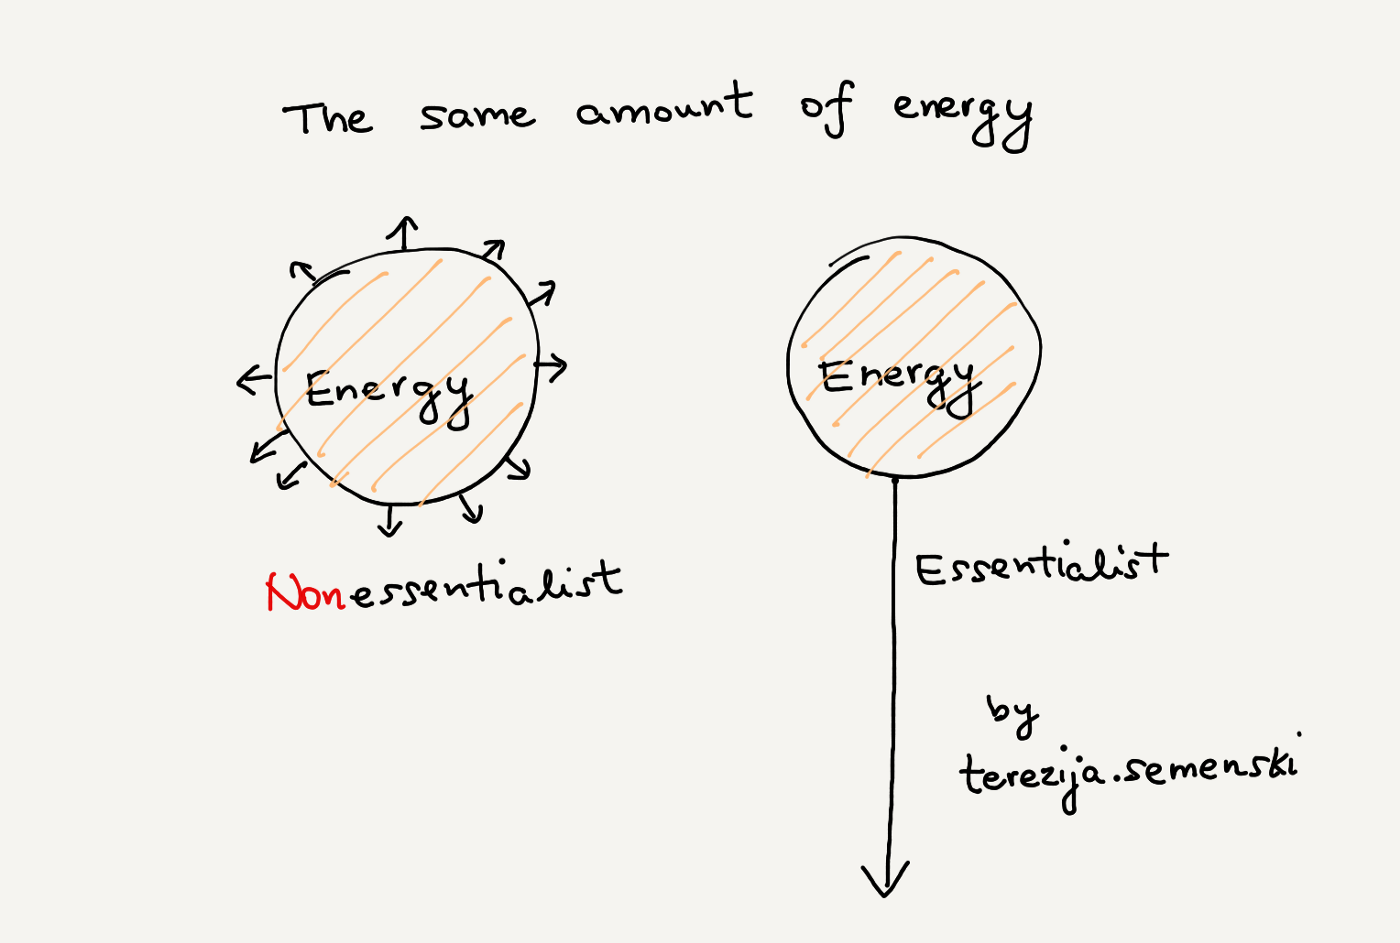 The same amount of energy
Energy
Energy
Nonessentialist
Essentialist
by
terezija.semenski